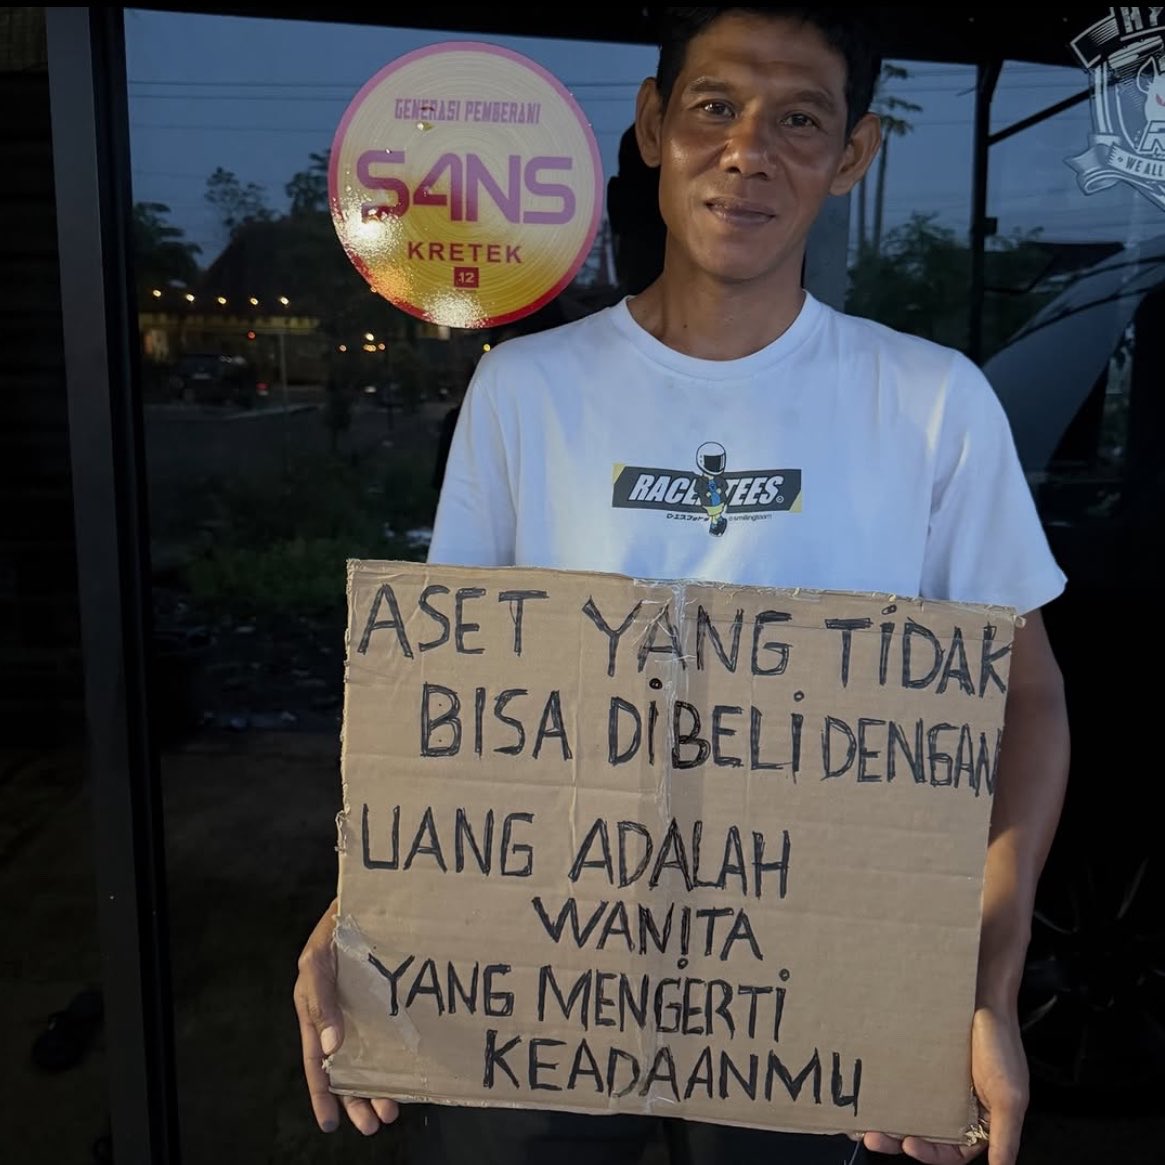 GENERASI PEMBERANI
S4NS
KRETEK
12
RACE TEES
@smilingteam
WE ALL
ASET YANG TiDAK
BISA DiBELi DENGAN
UANG ADALAH
WANiTA
YANG MENGERTi
KEADAANMU